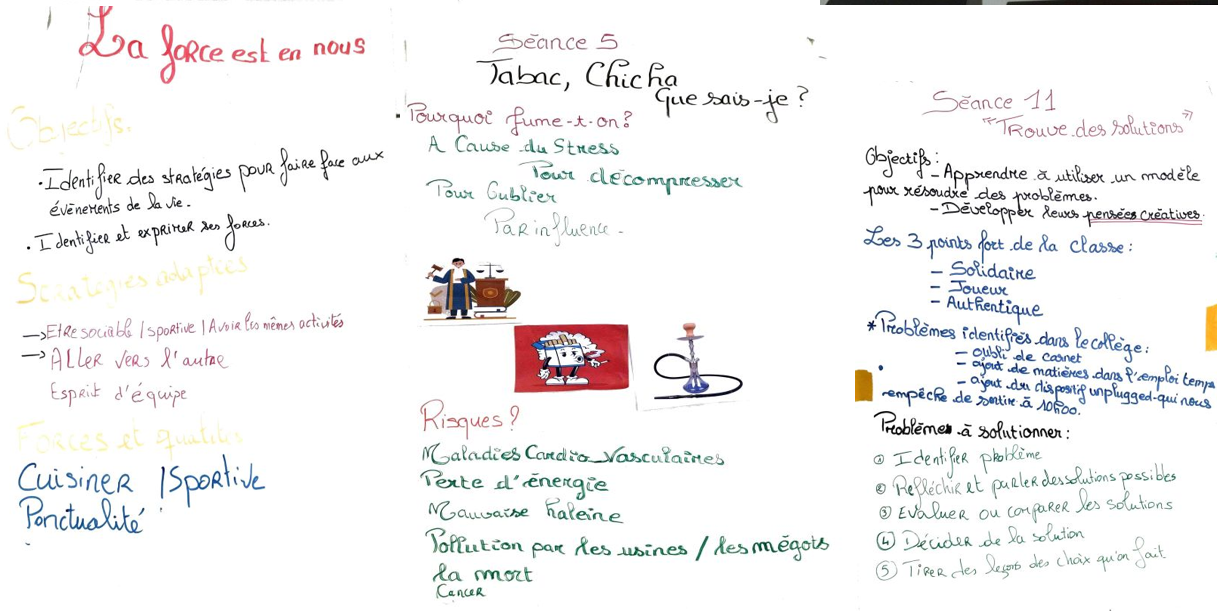 La force est en nous
Objectifs.
. Identifier des stratégies pour faire face aux
évènements de la vie.
. Identifier et exprimer ses forces.
Stratégies adaptées
→ Etre sociable / sportive / Avoir les mêmes activités
→ Aller vers l'autre
Esprit d'équipe
Forces et qualités
Cuisiner / Sportive
Ponctualité
Séance 5
Tabac, Chicha
Que sais-je ?
. Pourquoi fume-t-on ?
A Cause du Stress
Pour décompresser
Pour Oublier
Par influence.
Risques ?
Maladies Cardio_Vasculaires
Perte d'énergie
Mauvaise haleine
Pollution par les usines / les mégots
la mort
Cancer
Séance 11
"Trouve des solutions"
Objectifs :
- Apprendre à utiliser un modèle
pour résoudre des problèmes.
- Développer leurs pensées créatives.
Les 3 points fort de la classe :
- Solidaire
- Joueur
- Authentique
* Problèmes identifiés dans le collège :
- oubli de carnet
- ajout de matières dans l'emploi temps
- ajout du dispositif unplugged qui nous
empêche de sortir à 10h00.
Problèmes à solutionner :
① Identifier problème
② Refléchir et parler des solutions possibles
③ Evaluer ou comparer les solutions
④ Décider de la solution
⑤ Tirer des leçons des choix qu'on fait